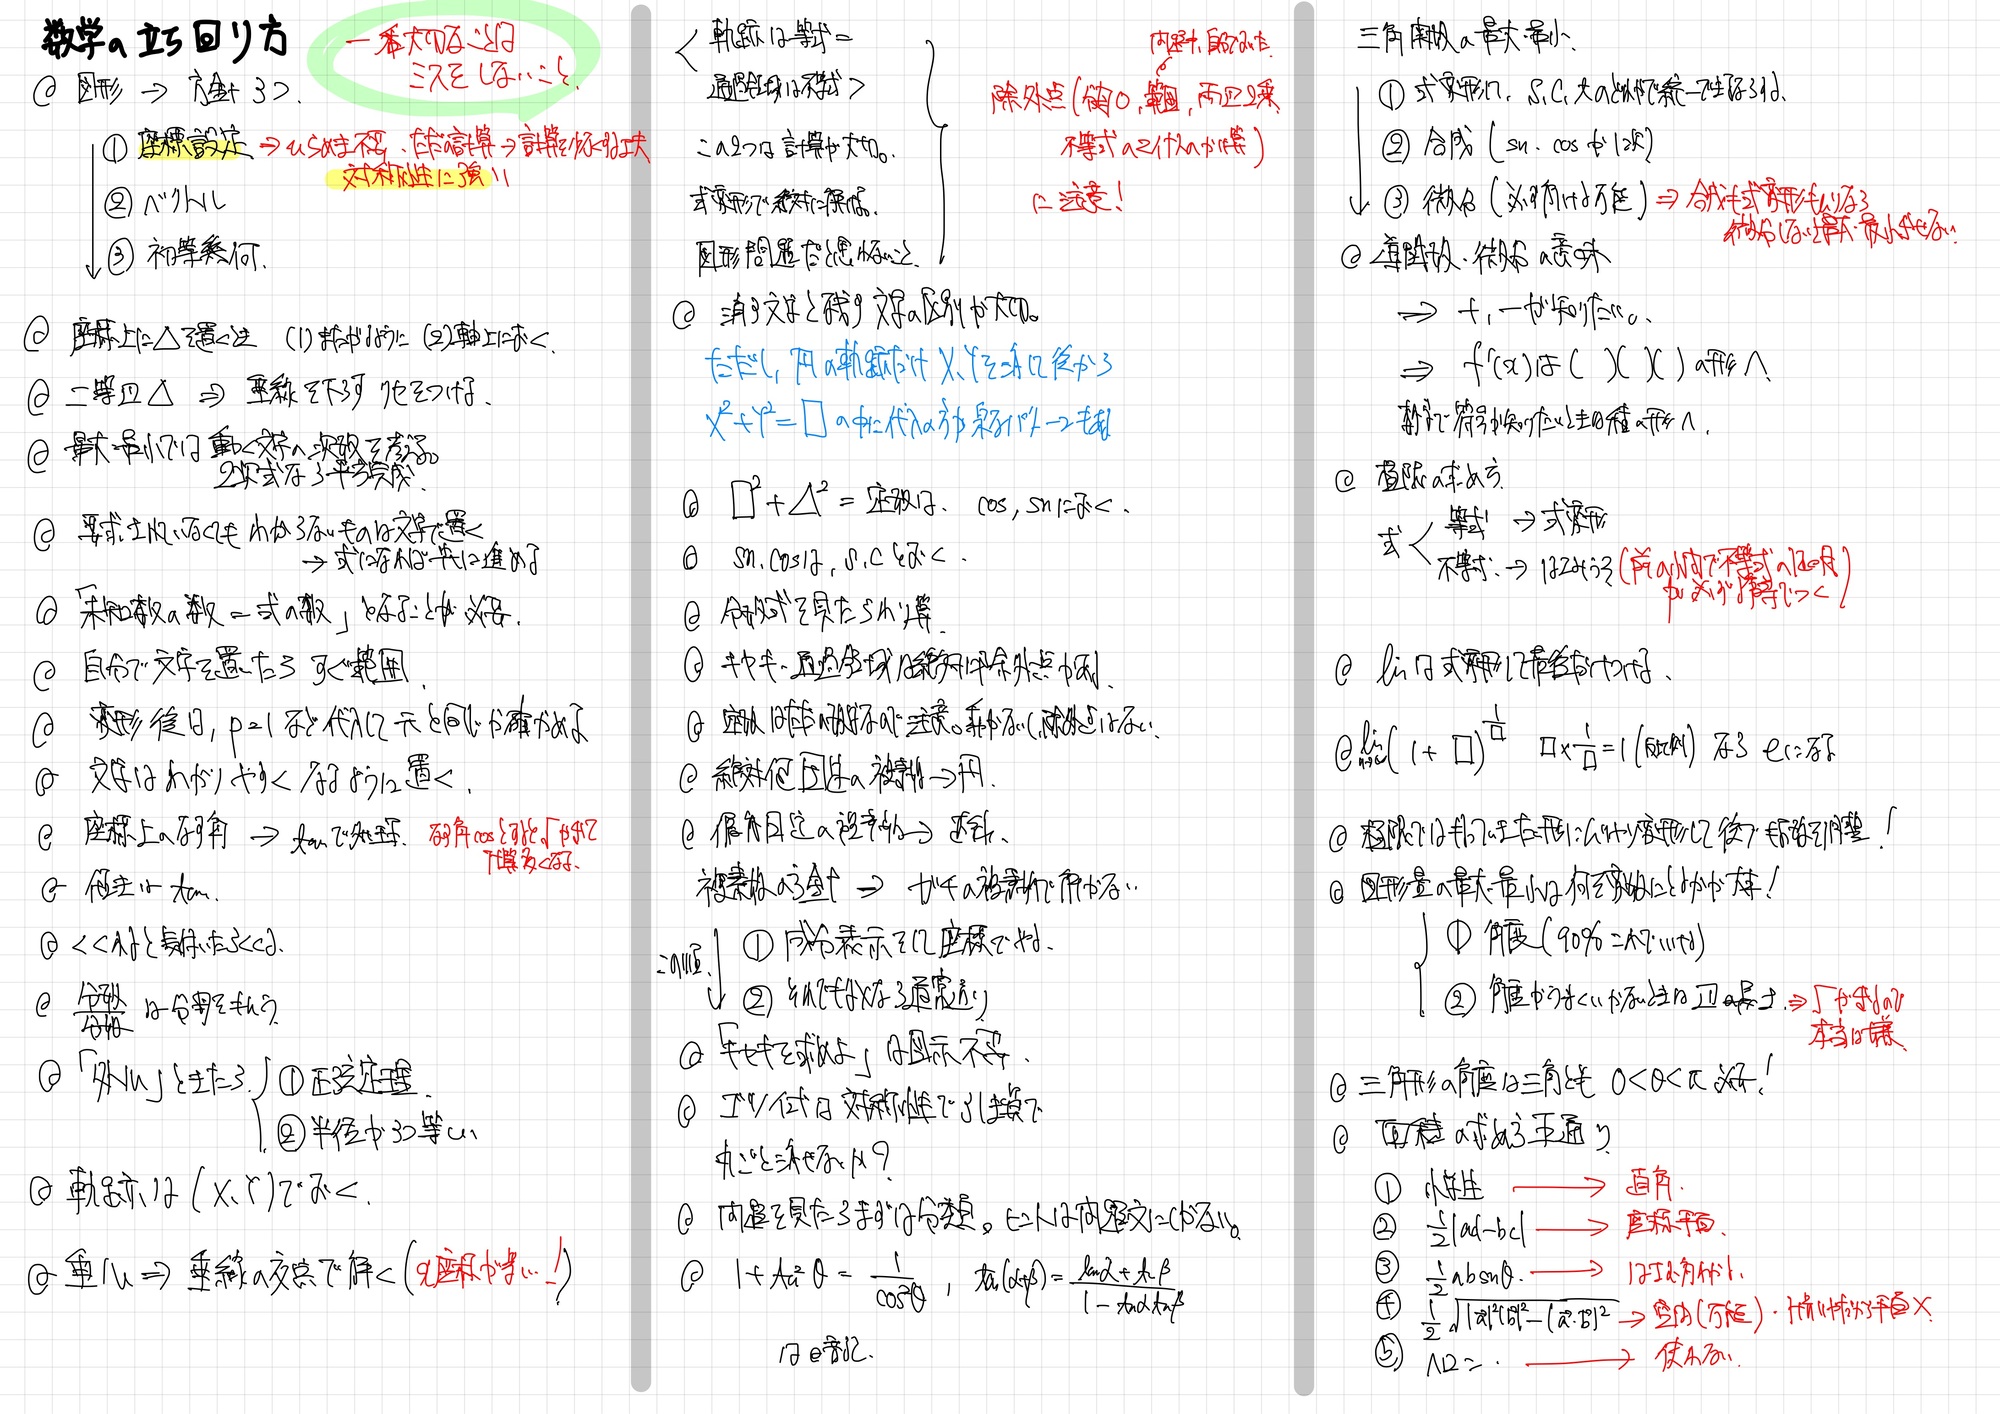 数学の立ち回り方
一番大切なことは
ミスをしないこと
@ 図形 → 方針3つ.
① 座標設定 ⇒ ひらめき不要、ただの計算→計算を少なくする工夫
対称性に強い
② ベクトル
③ 初等幾何.
@ 座標上に△を置くとき (1)またがるように (2)軸上におく.
@ 二等辺△ ⇒ 垂線を下ろすクセをつける.
@ 最大・最小では動く文字の次数を考える。
2次式なら平方完成.
@ 要求されていなくてもわからないものは文字で置く
→ 式になれば一気に進める
@ 「未知数の数=式の数」となることが必要.
@ 自分で文字を置いたらすぐ範囲.
@ 変形後は, p=1など代入して元と同じか確かめる
@ 文字はわかりやすくなるように置く.
@ 座標上のなす角 → tanで処理. なす角cosとすると√がでて
計算多くなる.
@ 傾きは tan.
@ くくれると気付いたらくくる.
@ 分数/分数 は分母をはらう
@ 「外心」ときたら ① 正弦定理.
② 半径が3つ等しい
@ 軌跡は (X, Y)でおく.
@ 垂心 ⇒ 垂線の交点で解く(x座標が…!)
<軌跡は等式=
通過領域は不等式>
この2つは計算が大切。
式変形で絶対に解ける.
図形問題だと思わないこと.
問題中, 自分でおいた
除外点(分母0, 範囲, 両辺2乗
不等式の2代入の計算)
に注意!
@ 消す文字と残す文字の区別が大切。
ただし, 円の軌跡だけ X, Yを消して後から
X²+Y²=□ の中に代入の方が楽なパターンもある
@ □²+△²=定数は. cos, sinにおく.
@ sin, cosは, s, cとおく.
@ 分数式を見たらわり算.
@ キセキ・通過領域は絶対に除外点があり.
@ 定数はただの数字なので注意。動かないし, 除外点はない.
@ 絶対値固定の複素数→円.
@ 偏角固定の複素数→直線.
複素数の方針 ⇒ ガチの複素数で解かない
この順. ① 成分表示をして座標でやる.
② それでもダメなら通常通り
@ 「キセキを求めよ」は図示不要.
@ ゴツイ式は対称性で引き算で
丸ごと消せないか?
@ 問題を見たらまずは分類。ヒントは問題文にしかない。
@ 1+tan²θ = 1/cos²θ , tan(α+β)= tanα+tanβ / 1−tanα tanβ
は@暗記.
三角関数の最大・最小.
① 式変形して, s, c, tのどれかで統一できるなら
② 合成 (sin, cosが1次)
③ 微分 (必ず解ける万能) ⇒ 合成も式変形もムリなら
微分しないと最大・最小出せない.
@ 導関数・微分の意味
⇒ +, −が知りたい。
⇒ f'(x)は ( )( )( ) の形へ.
数学で符号が知りたいときは積の形へ.
@ 極限の求め方
式< 等式 → 式変形
不等式 → はさみうち (前の小問で不等式の証明
が必ず誘導でつく)
@ limは式変形して最後だけつける.
@ lim(1+□)^{1/□} □×1/□=1(反比例) なら eになる
@ 極限ではもっていきたい形にムリヤリ変形して後で帳尻を調整!
@ 図形量の最大・最小は何を変数にとるかが大事!
① 角度(90% これでいける)
② 角度がうまくいかないときは辺の長さ. ⇒ √がでるので
本当は嫌.
@ 三角形の角度は三角とも 0<θ<π 必ず!
@ 面積の求め方五通り
① 小学生 → 直角.
② 1/2|ad−bc| → 座標平面.
③ 1/2 ab sinθ. → はさむ角わかり.
④ 1/2√|a|²|b|²−(a・b)² → 空間(万能)・
⑤ ヘロン. → 使わない.